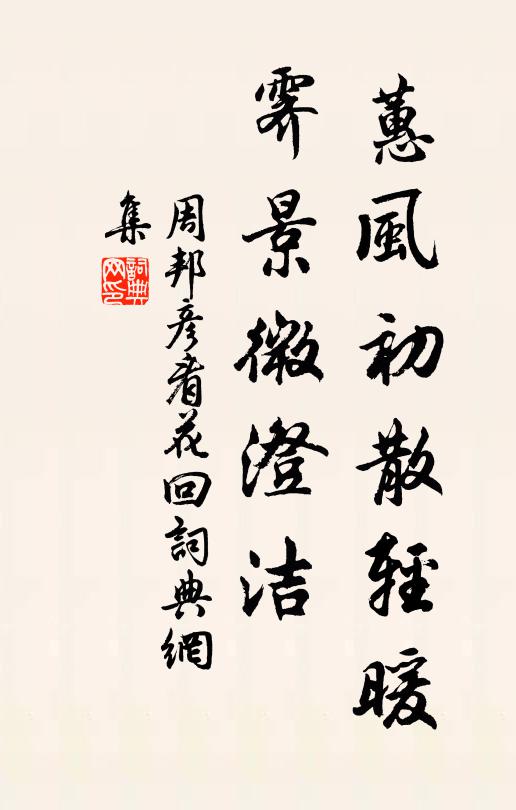 蕙風初散輕暖
霽景微澄洁
周邦彥看花回詞典網
集
詞典
网印